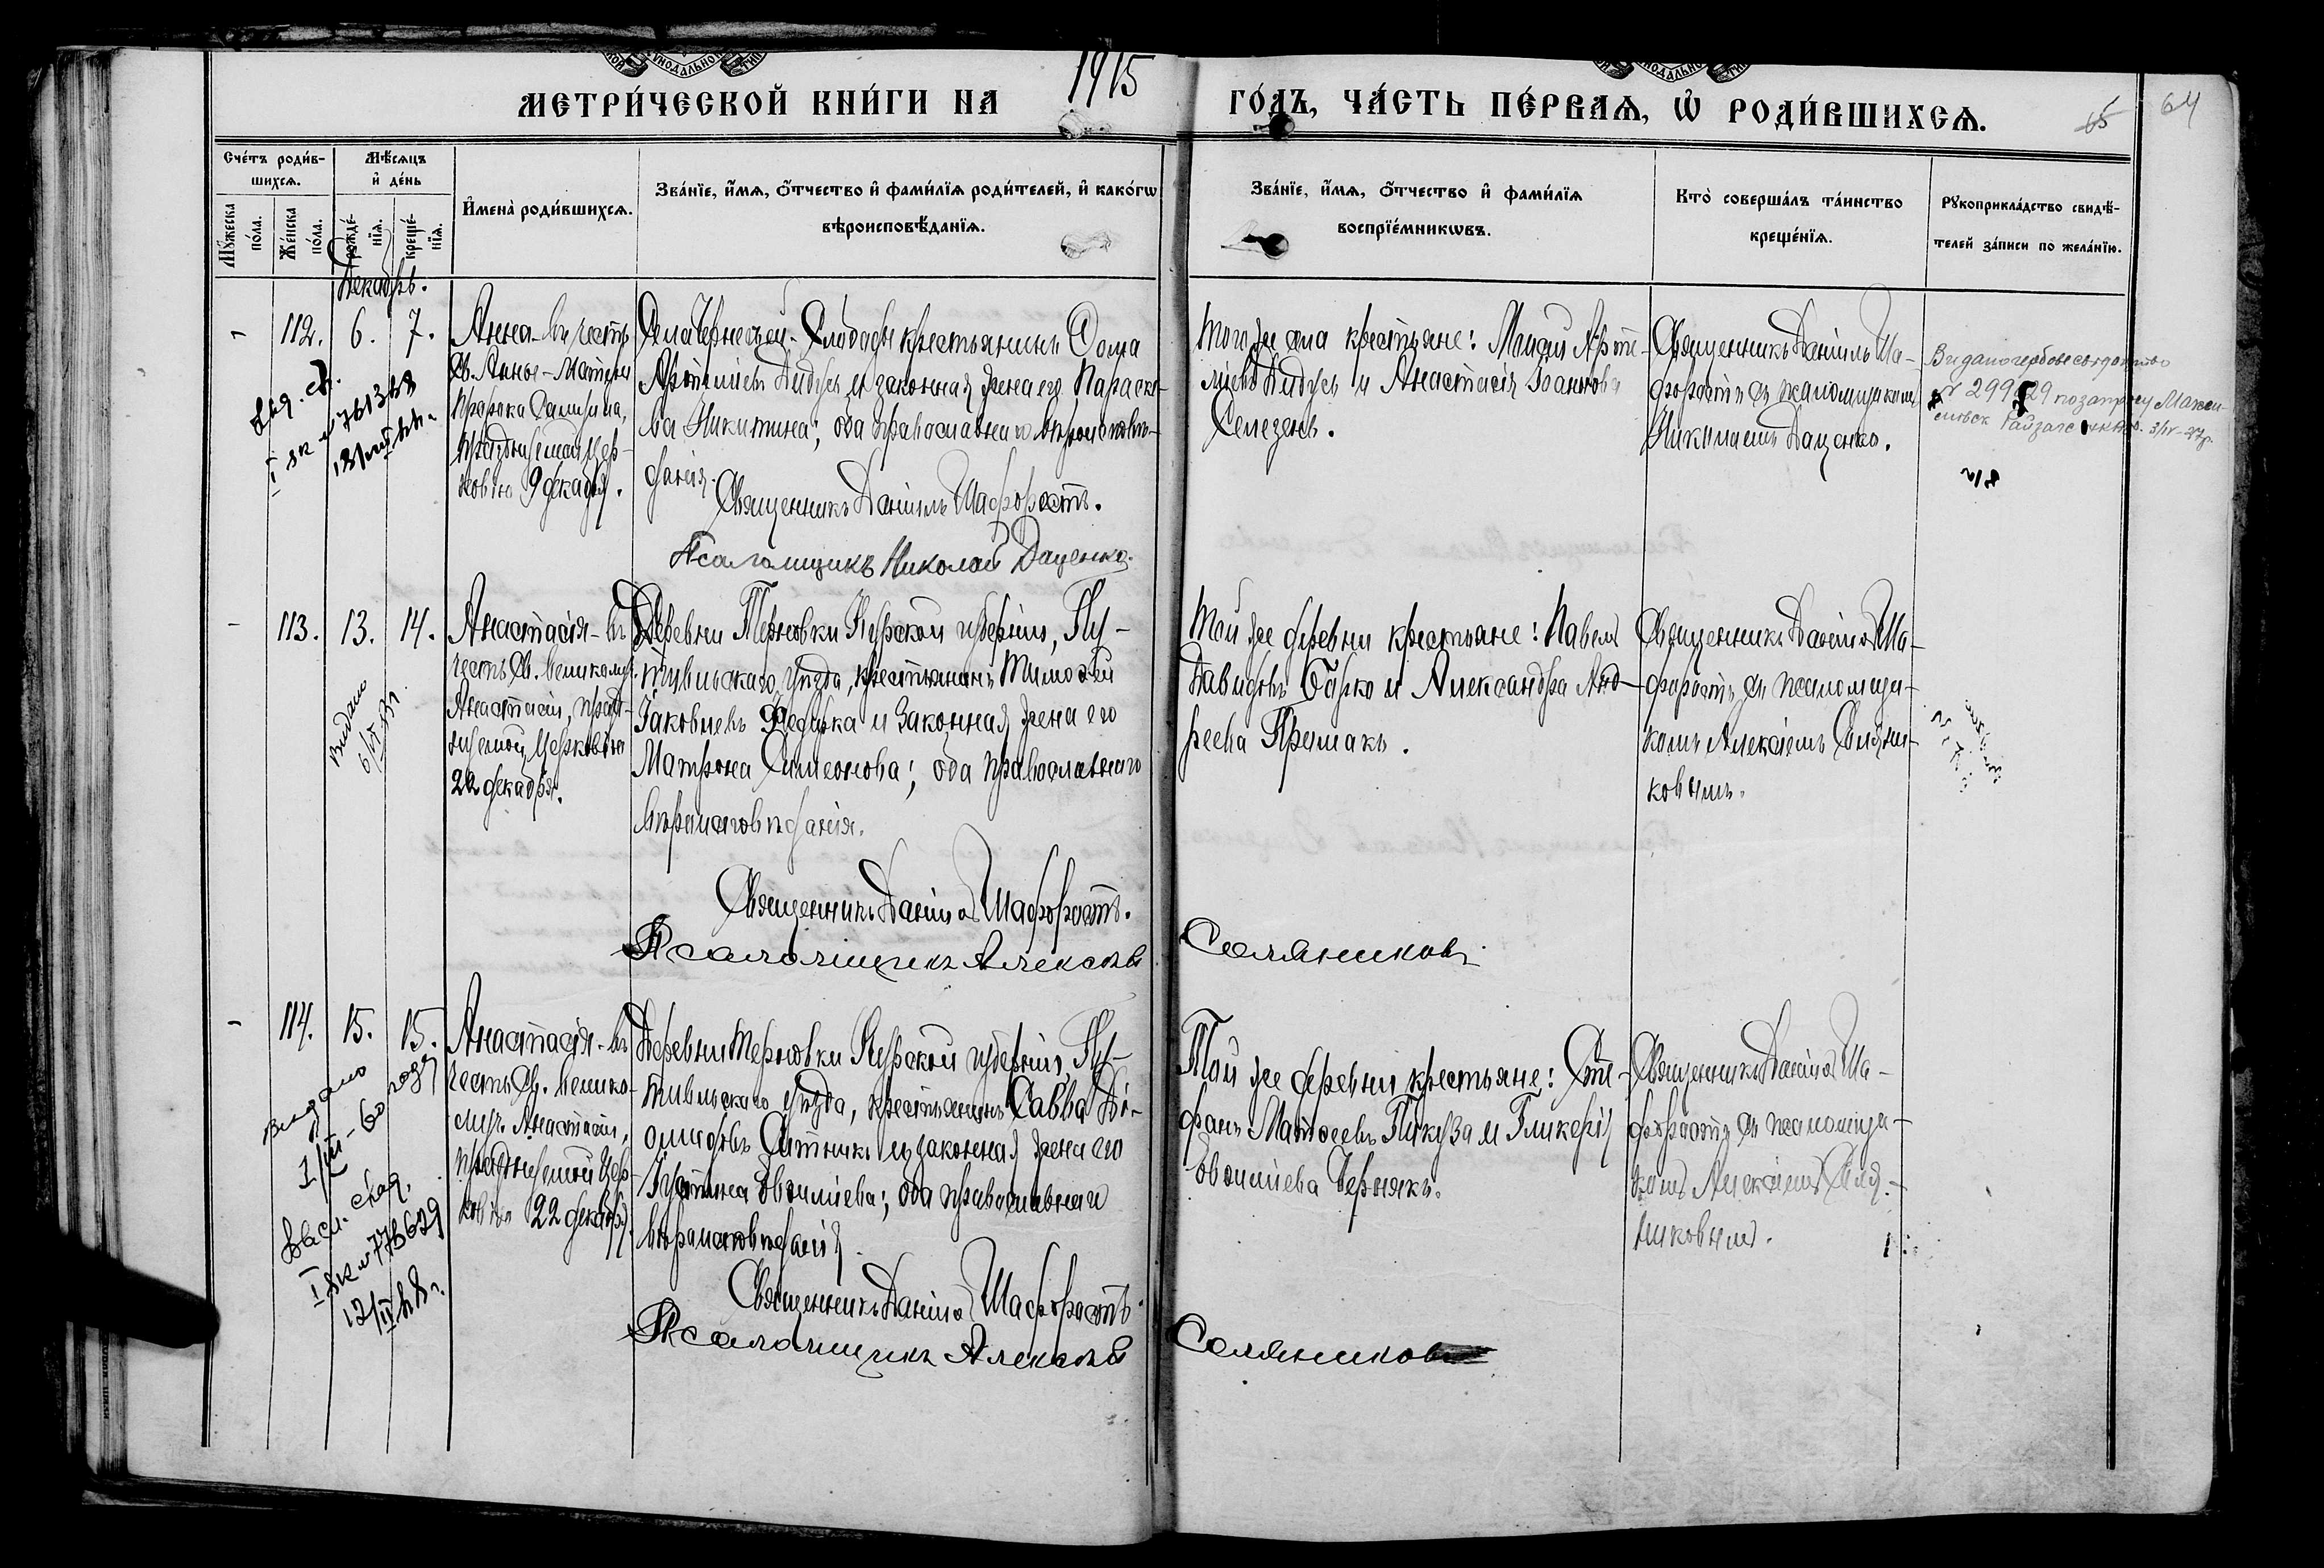 1915
МЕТРИ́ЧЕСКОЙ КНИ́ГИ НА
ГО́ДЪ, ЧА́СТЬ ПЕ́РВАѦ, Ѡ҆ РОДИ́ВШИХСѦ.
65
64
Сче́тъ роди́в-
шихсѧ.
Мѣ́сѧцъ
и҆ де́нь
Мꙋ́жеска
по́ла.
Же́нска
по́ла.
рожде́-
нїѧ.
креще́-
нїѧ.
И҆мена̀ роди́вшихсѧ.
Зва́нїе, и҆́мѧ, ѻ҆́тчество и҆ фами́лїѧ роди́телей, и҆ како́гѡ
вѣроисповѣ́данїѧ.
Зва́нїе, и҆́мѧ, ѻ҆́тчество и҆ фами́лїѧ
воспрїе́мникѡвъ.
Кто̀ соверша́лъ та́инство
креще́нїѧ.
Рꙋкоприкла́дство свидѣ́-
телей за́писи по жела́нїю.
Декабрь.
- 112. 6. 7.
Анна - въ честь
Св. Анны - Матери
Пророка Самуила,
празднуемой Цер-
ковію 9 декабря.
Села Чернечьей - Слободы крестьянинъ Ѳома
Артемьевъ Дидусь и законная жена его Параске-
ва Никитина; оба православнаго вѣроисповѣ-
данія.
Священникъ Даніилъ Шафоростъ.
Псаломщикъ Николай Даценко.
Того же села крестьяне:
Дидусь и Анастасія Іоаннова
Селезень.
Священникъ Даніилъ Ша-
форостъ съ псаломщикомъ
Николаемъ Даценко.
Видано гербове свидоцтво
№ 299629 по запросу
- 113. 13. 14.
Видано
Анастасія - въ
честь Св. великому.
Анастасіи, празд-
нуемой Церковію
22 декабря.
Деревни Терновки Курской губерніи, Пу-
тивльскаго уѣзда, крестьянинъ Тимоѳей
Іаковлевъ и законная жена его
Матрона Симеонова; оба православнаго
вѣроисповѣданія.
Священникъ Даніилъ Шафоростъ.
Псаломщикъ Алексѣй
Той же деревни крестьяне: Павелъ
Давидовъ Барко и Александра Анд-
реева Примакъ.
Священникъ Даніилъ Ша-
форостъ съ псаломщи-
комъ Алексіемъ Соляни-
ковымъ.
Соляниковъ
- 114. 15. 15.
Видано
1/III - 60 года
I ЯК № 773629
Анастасія - въ
честь Св. велико-
муч. Анастасіи,
празднуемой Цер-
ковію 22 декабря.
Деревни Терновки Курской губерніи, Пу-
тивльскаго уѣзда, крестьянинъ Савва Ді-
омидовъ Ситникъ и законная жена его
Іустина; оба православнаго
вѣроисповѣданія.
Священникъ Даніилъ Шафоростъ.
Псаломщикъ Алексѣй
Той же деревни крестьяне: Сте-
фанъ Матѳеевъ Пикуза и Гликерія
Чернякъ.
Священникъ Даніилъ Ша-
форостъ съ псаломщи-
комъ Алексіемъ Соля-
никовымъ.
Соляниковъ